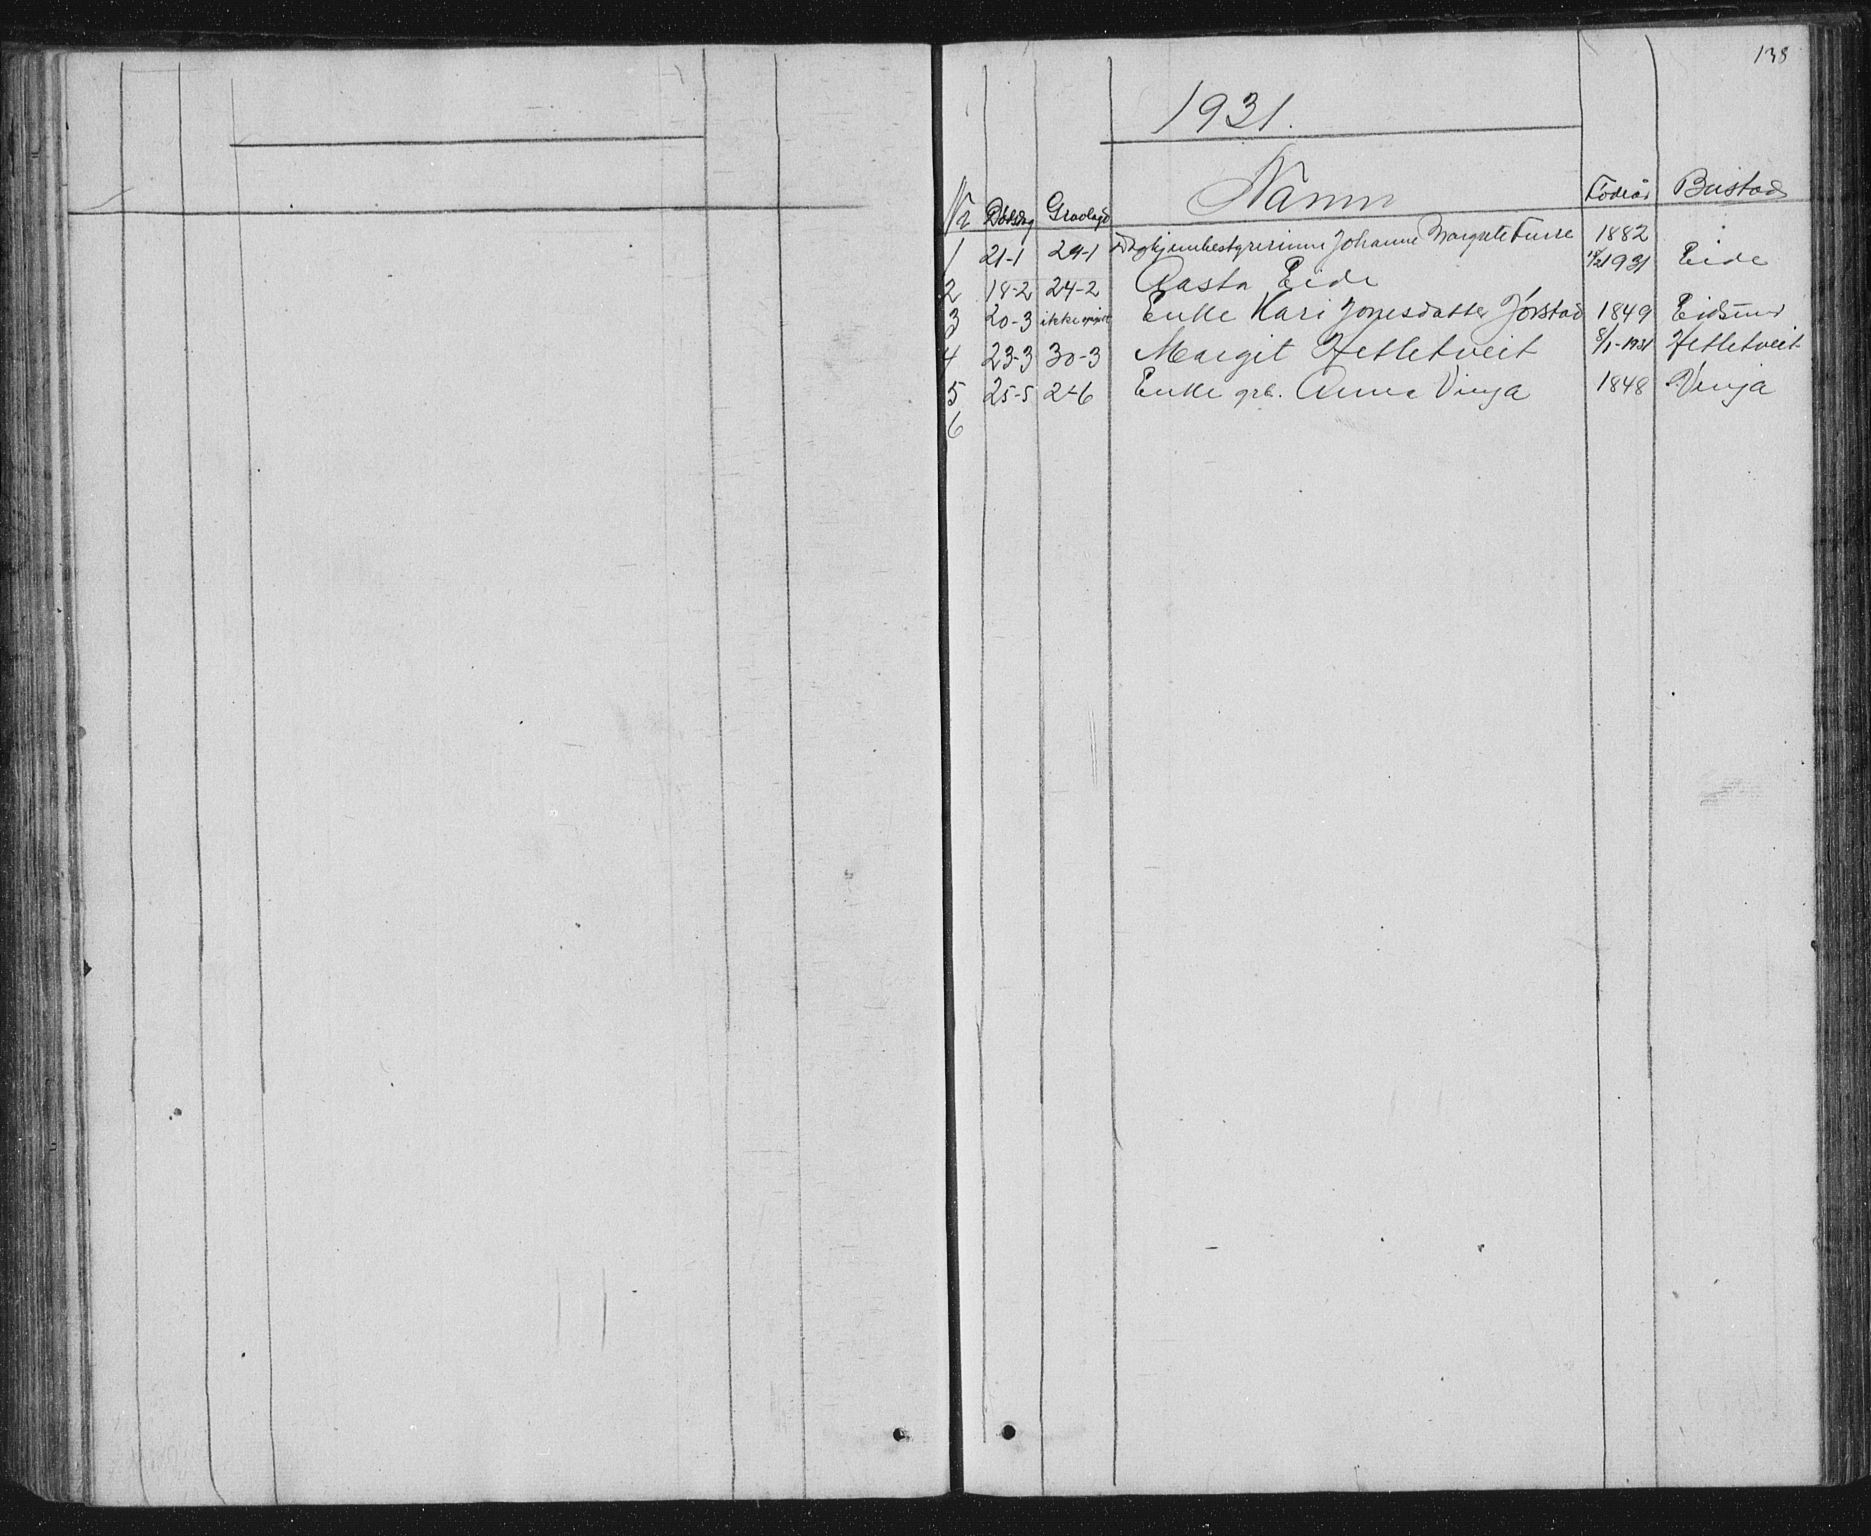 138
1931.
Nr Dødsdag Gravlagt Namn Fødeår Bustad
1 21-1 29-1 Johanne Margrete Furre 1882
2 18-2 24-2 Aasta Eide 1931 Eide
3 20-3 ikke Enke Kari Jonesdatter Jørstad 1849 Eidsund
4 23-3 30-3 Margit Hetletveit 8/1-1931 Hetletveit
5 25-5 2-6 Enke grb. Anna Vinja 1848 Vinja
6